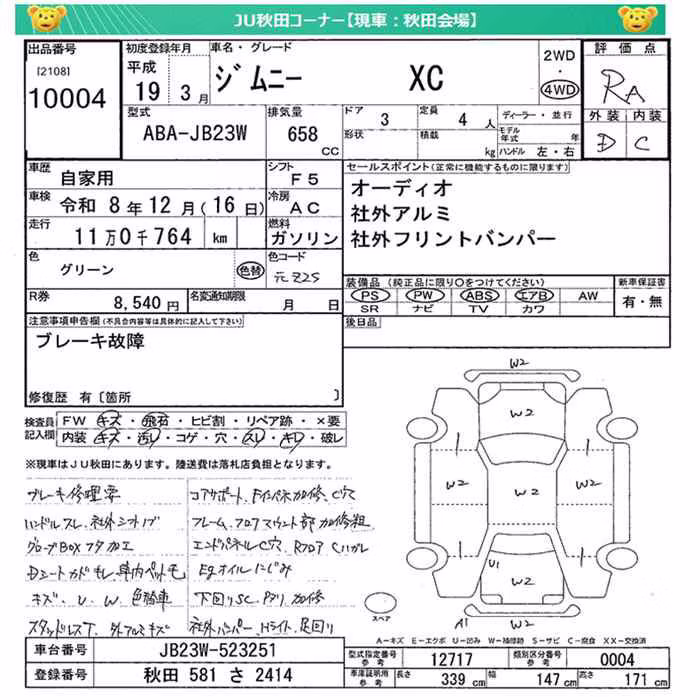 JU秋田コーナー【現車：秋田会場】
出品番号
[2108]
10004
初度登録年月
平成
19 3月
車名・グレード
ジムニー XC
2WD
・
4WD
評価点
RA
外装 内装
D C
型式
ABA-JB23W
排気量
658
CC
ドア
3
定員
4 人
形状
積載
kg
ディーラー・並行
モデル年式 年
ハンドル 左・右
車歴
自家用
シフト
F5
車検
令和 8年12月(16日)
冷房
AC
走行
11万0千764 km
燃料
ガソリン
色
グリーン
色替
色コード
元Z2S
R券
8,540 円
名変通知期限
月 日
セールスポイント(正常に機能するものに限ります)
オーディオ
社外アルミ
社外フリントバンパー
装備品(純正品に限り○をつけてください)
PS PW ABS エアB AW
SR ナビ TV カワ
新車保証書
有・無
後日品
注意事項申告欄(不具合内容等は具体的に記入して下さい)
ブレーキ故障
修復歴 有〔箇所 〕
検査員記入欄
FW キズ・飛石・ヒビ割・リペア跡・×要
内装 キズ・汚レ・コゲ・穴・スレ・キレ・破レ
※現車はJU秋田にあります。陸送費は落札店負担となります。
ブレーキ修理要
ハンドルスレ、社外シフトノブ
グローブBOXフタ加工
Dシートカドキレ、車内ペット毛
キズ、U、W、色替車
スタッドレスT、外アルミキズ
コアサポート、Fインパネ加修、C穴
フレーム、フロアマウント部加修粗
エンドパネルC穴、Rフロア Cハガレ
Egオイルにじみ
下回りSC、Pタリ 加修
社外バンパー、Hライト、足回り
W2
W2
W2
W2
W2
W2
U1
W2
A1 W2
スペア
A−キズ E−エクボ U−凹み W−補修跡 S−サビ C−腐食 XX−交換済
車台番号
JB23W-523251
登録番号
秋田 581 さ 2414
型式指定番号
参考
12717
類別区分番号
参考
0004
車庫証明
参考
長さ
339 cm
幅
147 cm
高さ
171 cm